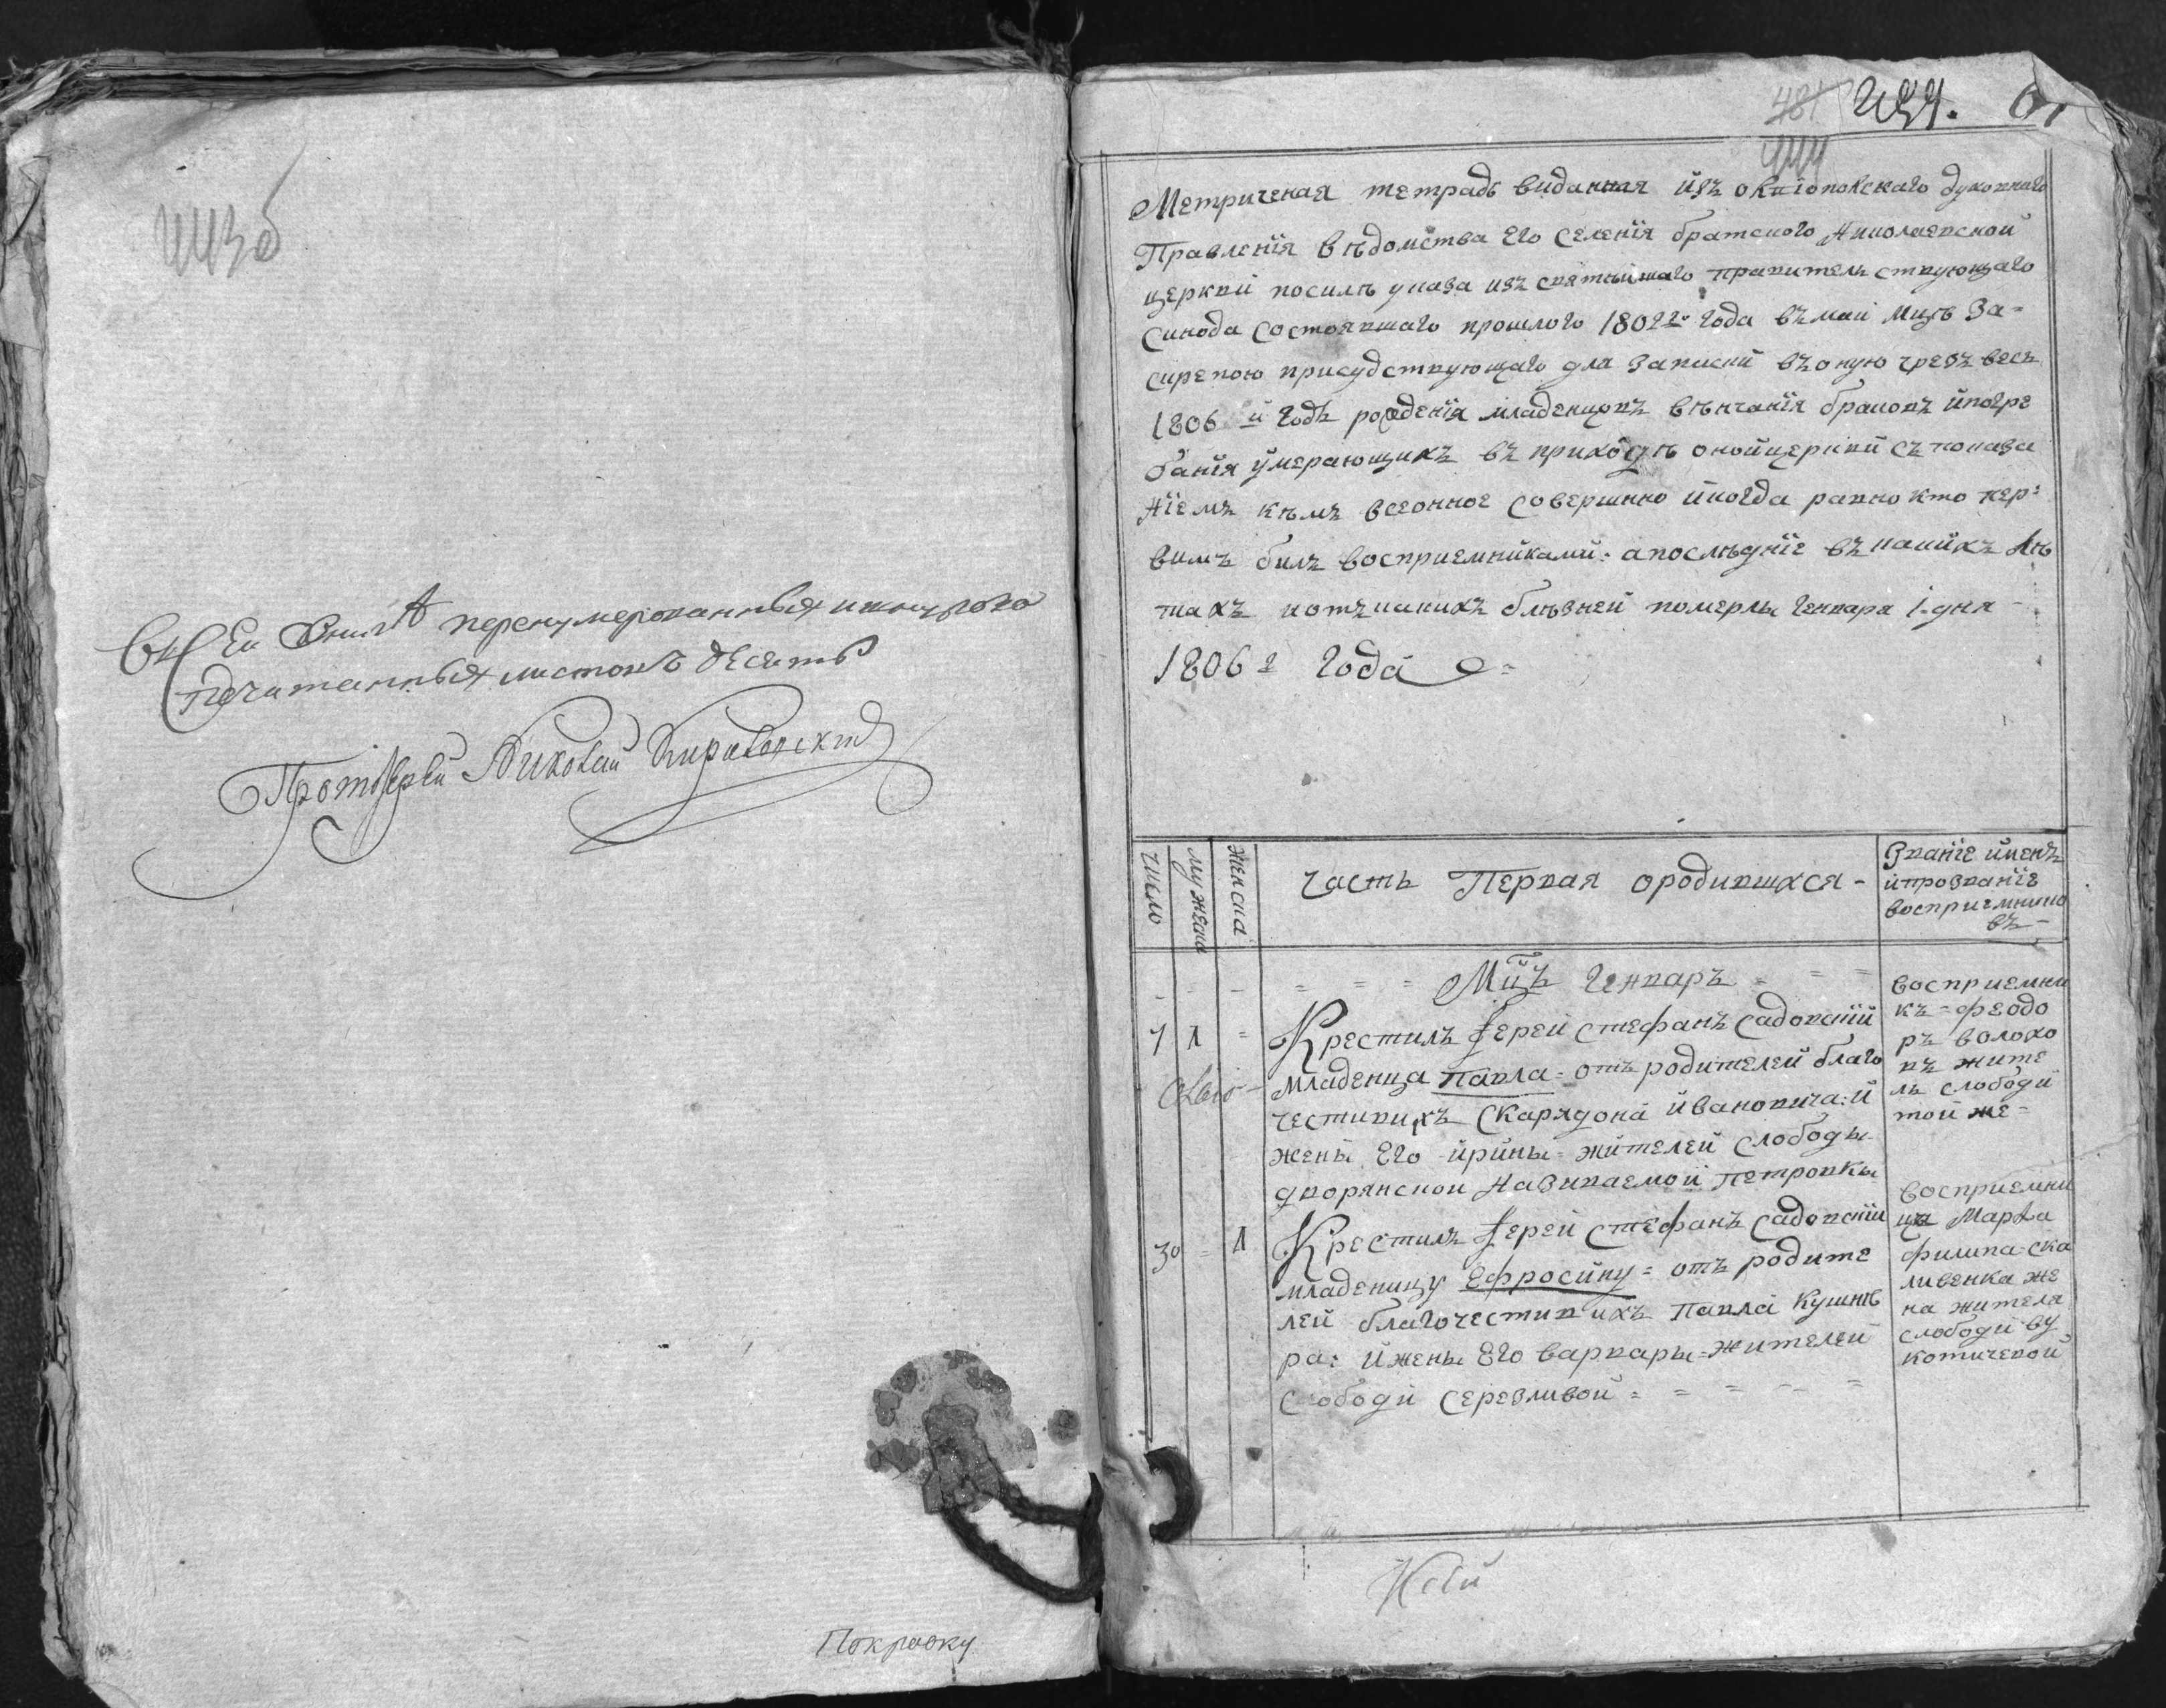 443об
Въ сей Книгѣ перенумерованныхъ и шнуро
печатанныхъ листовъ десять
Протоіерей Николай
Покровку
481 444. 61
444
Метрическая тетрадь виданная изъ духовнаго
Правленія вѣдомства Его селенія братского Николаевской
церкви посилѣ указа изъ святѣйшаго правительствующаго
Синода состоявшаго прошлого 1802го года въ маи мцѣ За-
скрепою присудствующаго для Записки въ оную чрезъ весь
1806й Годъ рождения младенцовъ вѣнчанія браковъ и погре
банія умерающихъ въ приходѣ оной церкви съ показа
ніемъ кѣмъ всеонное совершнно и когда равно кто пер:
вимъ билъ восприемниками: а послѣдніе въ какихъ лѣ
тахъ и отъ какихъ блѣзней померлы Генваря 1 дня -
1806 Года
число
мужеска
женска
часть Первая о родившихся -
Званіе именъ
и прозваніе
восприемнико
въ -
- - - = = = Мцъ Генваръ = = =
7 1 = Крестилъ Іерей Стефанъ Садовскій
младенца Павла = отъ родителей благо
честивихъ Скарядона Ивановича: и
жены Его Ирины = жителей слободы
дворянской Називаемой Петровки
восприемни
къ = Феодо
ръ волохо
въ жите
ль слободи
той же =
30 = 1 Крестилъ Іерей Стефанъ Садовскій
младеницу Ефросину = отъ родите
лей благочестивихъ Павла Кушнѣ
ра: и жены Его варвары = жителей
слободи Серезливой = = = - =
восприемни
ца Марѳа
филипа ска
ливенка же
на жителя
слободи ву
котичевой